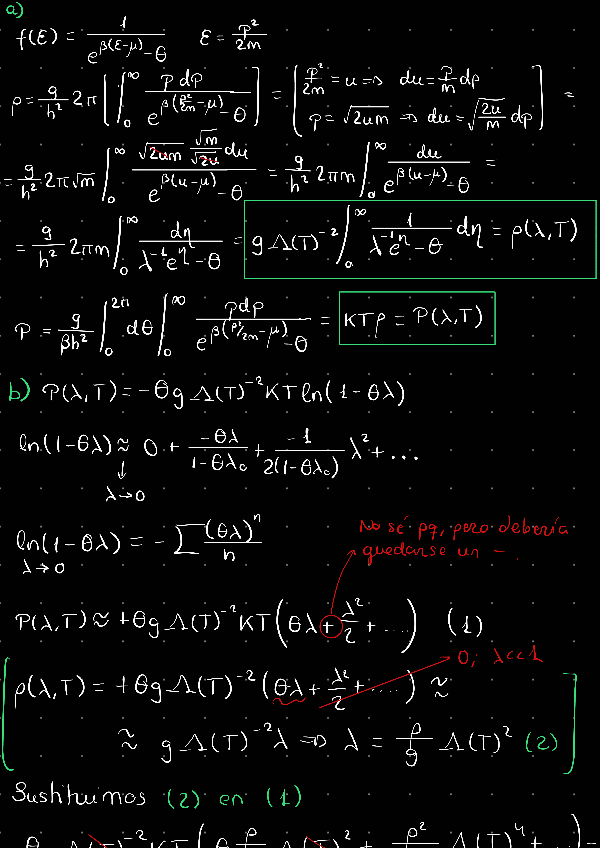 a)
f(ε) = 1/(e^{β(ε-μ)} - θ)    ε = p²/2m
ρ = g/h² 2π [∫₀^∞ p dp/(e^{β(p²/2m - μ)} - θ)] = [p²/2m = u ⇒ du = p/m dp
p = √2um ⇒ du = √(2u/m) dp] =
= g/h² · 2π√m ∫₀^∞ (√2um √m/√2u du)/(e^{β(u-μ)} - θ) = g/h² 2πm ∫₀^∞ du/(e^{β(u-μ)} - θ) =
= g/h² 2πm ∫₀^∞ dη/(λ⁻¹e^η - θ) = g Λ(T)⁻² ∫₀^∞ 1/(λ⁻¹e^η - θ) dη = ρ(λ,T)
P = g/βh² ∫₀^{2π} dθ ∫₀^∞ p dp/(e^{β(p²/2m - μ)} - θ) = KTρ = P(λ,T)
b) P(λ,T) = -θg Λ(T)⁻² KT ln(1 - θλ)
ln(1-θλ) ≈ 0 + -θλ/(1-θλ₀) + -1/(2(1-θλ₀)) λ² + ...
↓
λ→0
No sé pq, pero debería
quedarse un -
ln(1-θλ) = - Σ (θλ)ⁿ/n
λ→0
P(λ,T) ≈ +θg Λ(T)⁻² KT (θλ + λ²/2 + ...) (1)
0; λ<<1
ρ(λ,T) = +θg Λ(T)⁻² (θλ + λ²/2 + ....) ≈
≈ g Λ(T)⁻² λ ⇒ λ = ρ/g Λ(T)² (2)
Sustituimos (2) en (1)